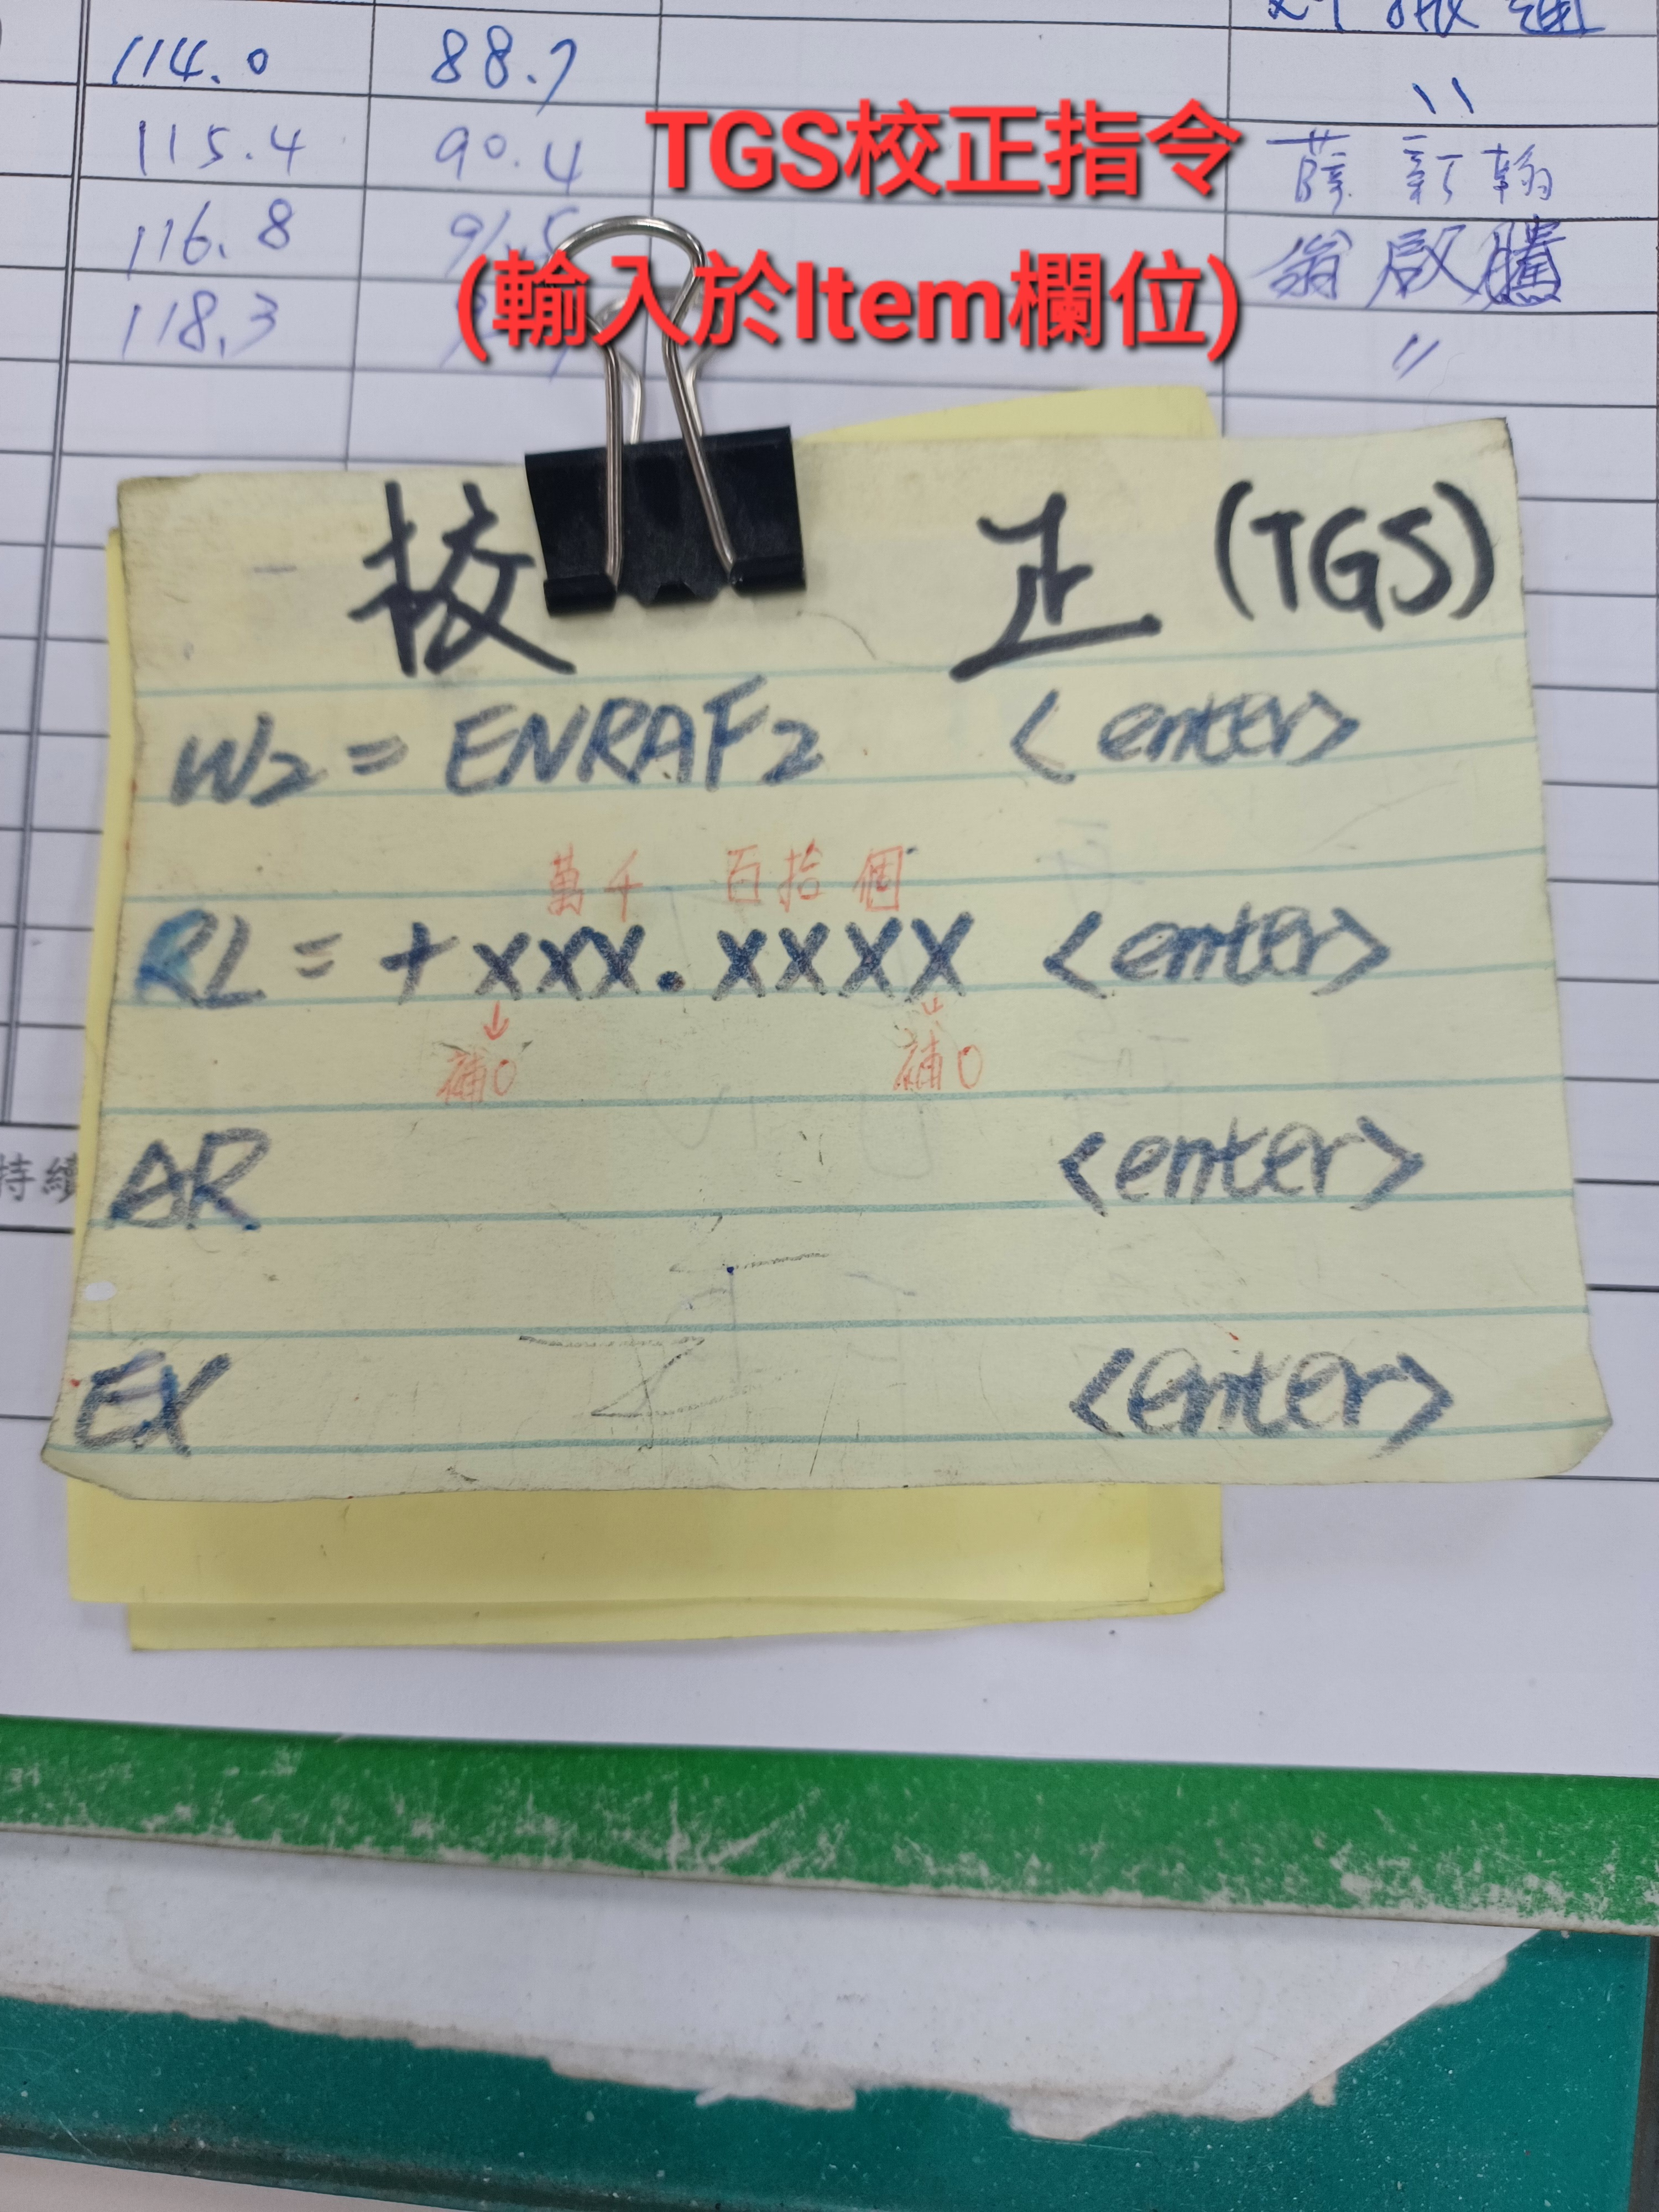 114.0 88.7
〃
115.4 90.4 薛新翰
116.8 91.5 翁啟騰
118.3 〃
TGS校正指令
(輸入於Item欄位)
校 正 (TGS)
W2 = ENRAF2 <enter>
萬千 百拾個
RL = +xxx.xxxx <enter>
補0 補0
AR <enter>
EX <enter>
持續